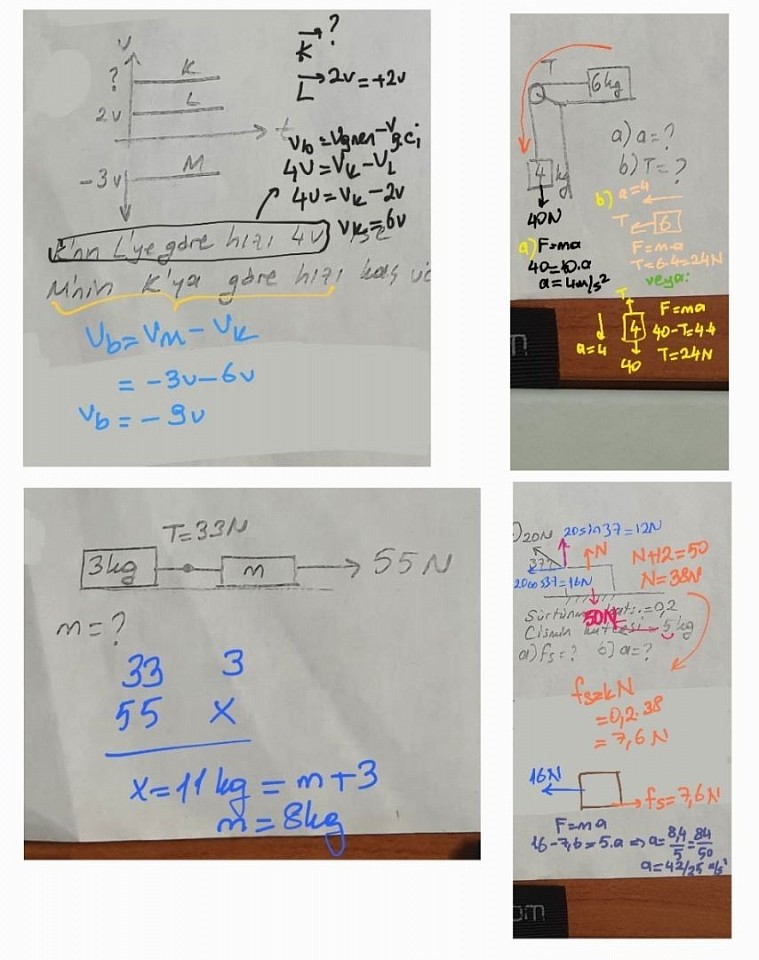 v
?
K
2v
L
t
-3v
M
K ?
L 2v = +2v
Vb = Vgnen - Vg.ci
4V = VK - VL
4V = VK - 2V
VK = 6V
K'nın L'ye göre hızı 4v
M'nin K'ya göre hızı kaç
Vb = VM - VK
= -3V - 6V
Vb = -9V
T
6kg
4 kg
40N
a) a = ?
b) T = ?
a) F = ma
40 = 10.a
a = 4m/s²
b) a = 4
T 6
F = m.a
T = 6.4 = 24N
veya:
T
4
a = 4
40
F = ma
40 - T = 4.4
T = 24N
T = 33N
3kg
m
55N
m = ?
33 3
55 X
x = 11 kg = m + 3
m = 8kg
20N
20sin37 = 12N
37
20cos37 = 16N
N
N + 12 = 50
N = 38N
50N
= 0,2
Cismin kütlesi 5 kg
a) fs = ? b) a = ?
fs = kN
= 0,2.38
= 7,6 N
16N
fs = 7,6N
F = ma
16 - 7,6 = 5.a ⇒ a = 8,4/5 = 84/50
a = 42/25 m/s²
om